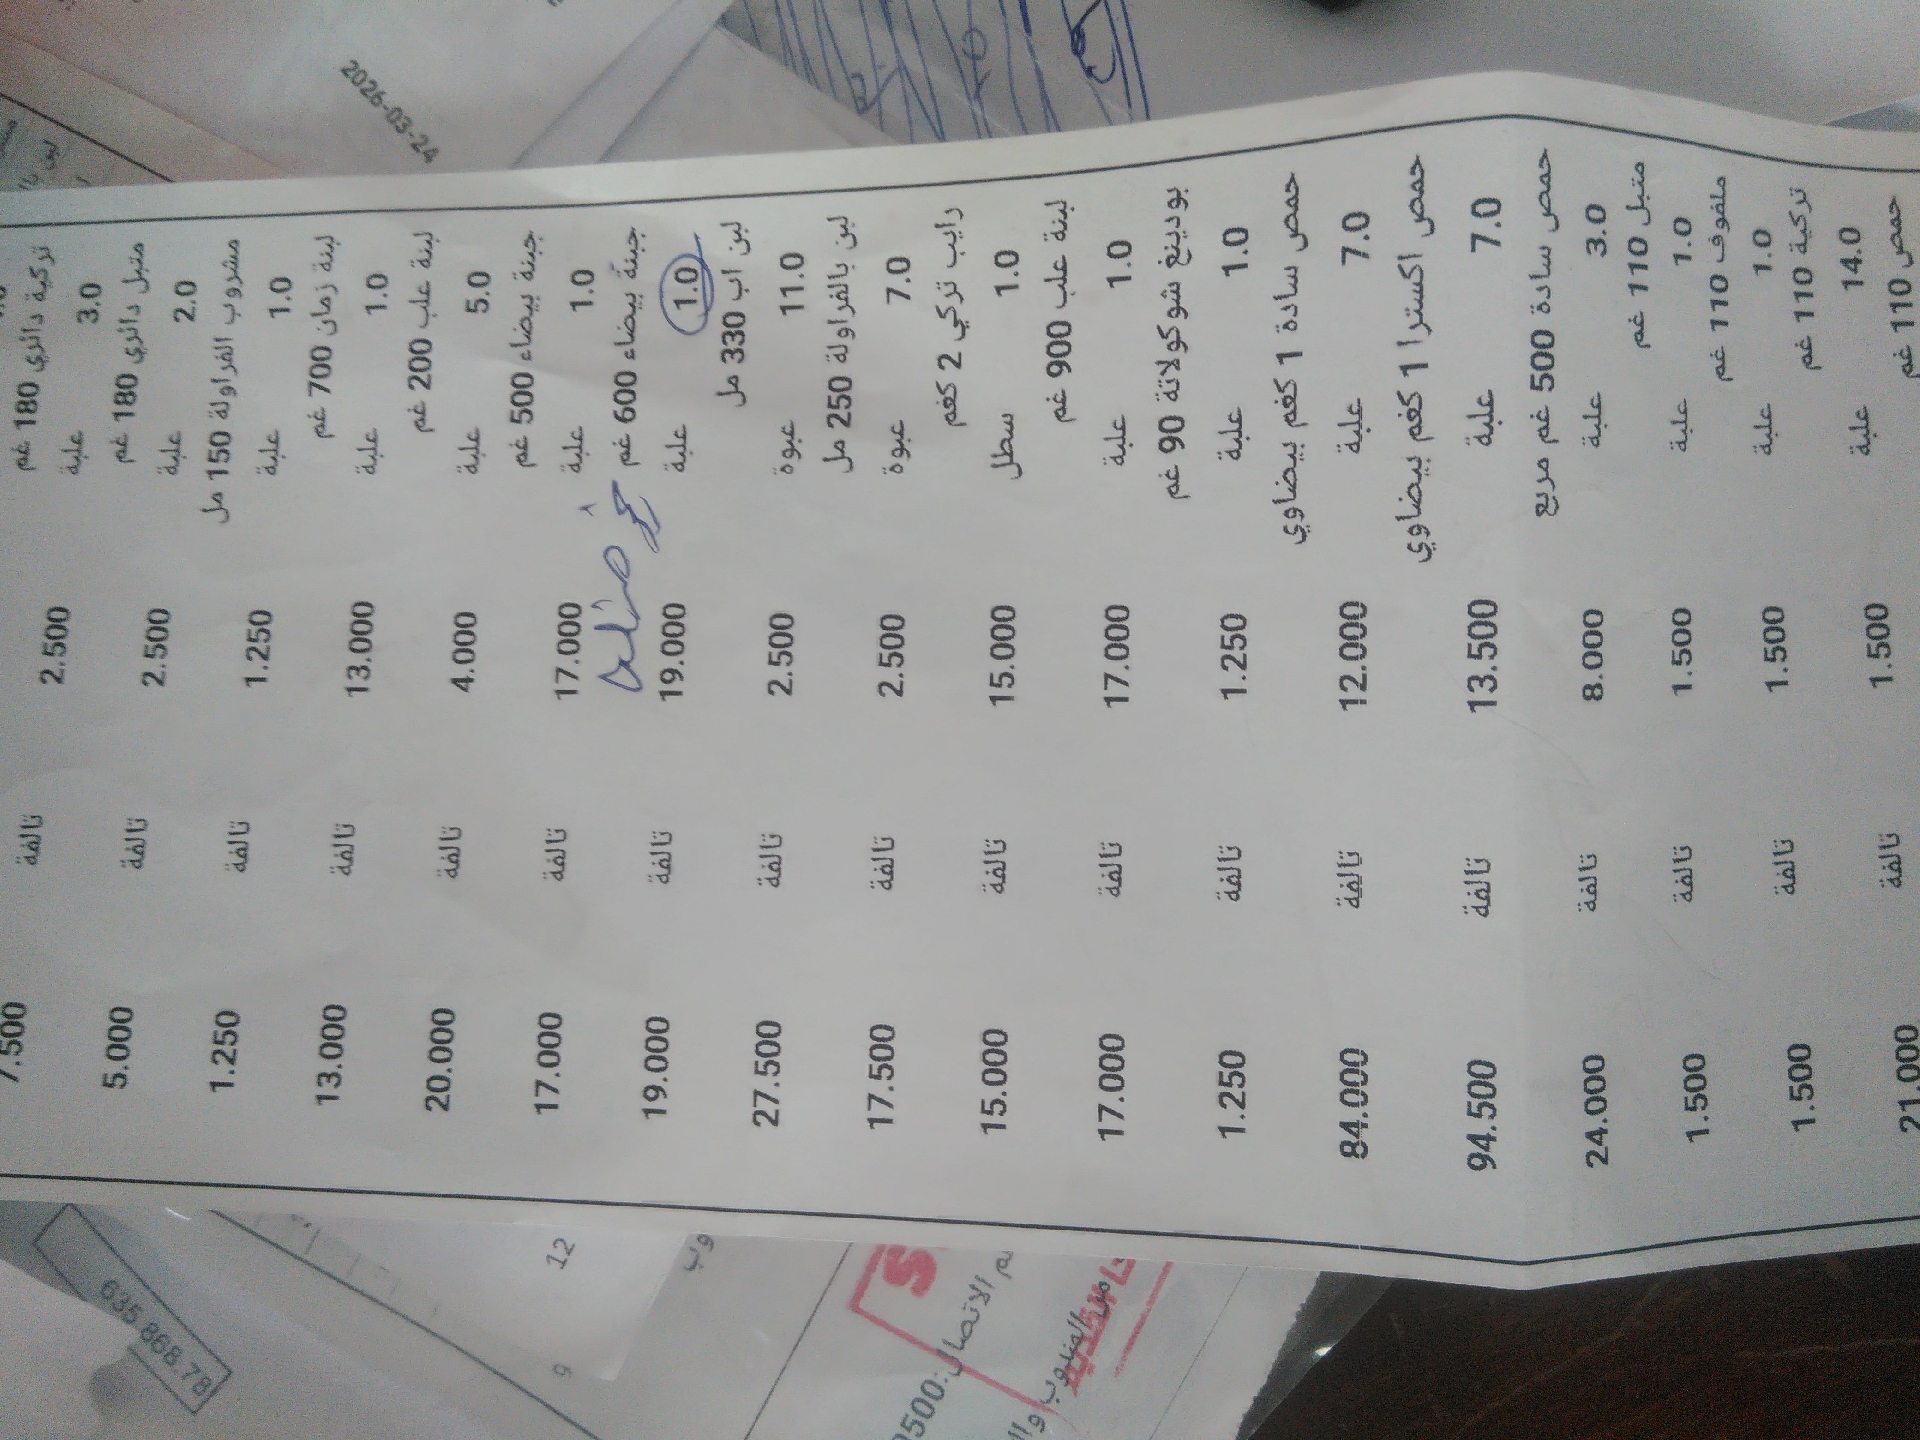 تركية دائري 180 غم
علبة 3.0 2.500 تالفة 7.500
متبل دائري 180 غم
علبة 2.0 2.500 تالفة 5.000
مشروب الفراولة 150 مل
علبة 1.0 1.250 تالفة 1.250
لبنة زمان 700 غم
علبة 1.0 13.000 تالفة 13.000
لبنة علب 200 غم
علبة 5.0 4.000 تالفة 20.000
جبنة بيضاء 500 غم
علبة 1.0 17.000 تالفة 17.000
جبنة بيضاء 600 غم
علبة 1.0 19.000 تالفة 19.000
لبن اب 330 مل
عبوة 11.0 2.500 تالفة 27.500
لبن بالفراولة 250 مل
عبوة 7.0 2.500 تالفة 17.500
رايب تركي 2 كغم
سطل 1.0 15.000 تالفة 15.000
لبنة علب 900 غم
علبة 1.0 17.000 تالفة 17.000
بودينغ شوكولاتة 90 غم
علبة 1.0 1.250 تالفة 1.250
حمص سادة 1 كغم بيضاوي
علبة 7.0 12.000 تالفة 84.000
حمص اكسترا 1 كغم بيضاوي
علبة 7.0 13.500 تالفة 94.500
حمص سادة 500 غم مربع
علبة 3.0 8.000 تالفة 24.000
متبل 110 غم
علبة 1.0 1.500 تالفة 1.500
ملفوف 110 غم
علبة 1.0 1.500 تالفة 1.500
تركية 110 غم
علبة 14.0 1.500 تالفة 21.000
حمص 110 غم
2026-03-24
635 868.78
12
9
الاتصال:
المندوب